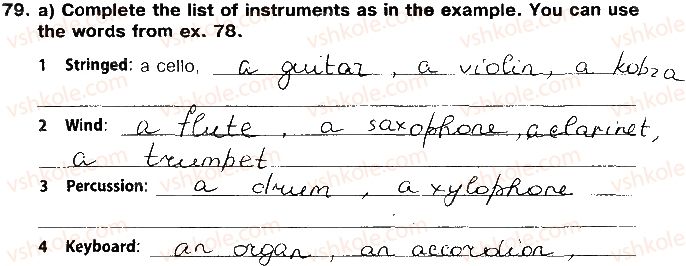 79. a) Complete the list of instruments as in the example. You can use
the words from ex. 78.
1 Stringed: a cello, a guitar, a violin, a kobza
2 Wind: a flute, a saxophone, a clarinet,
a trumpet
3 Percussion: a drum, a xylophone
4 Keyboard: an organ, an accordion,